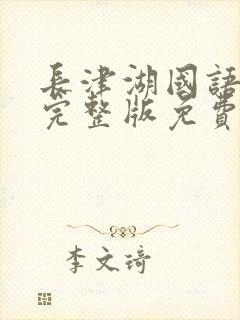 長津湖國語
完整版免費
李文琦